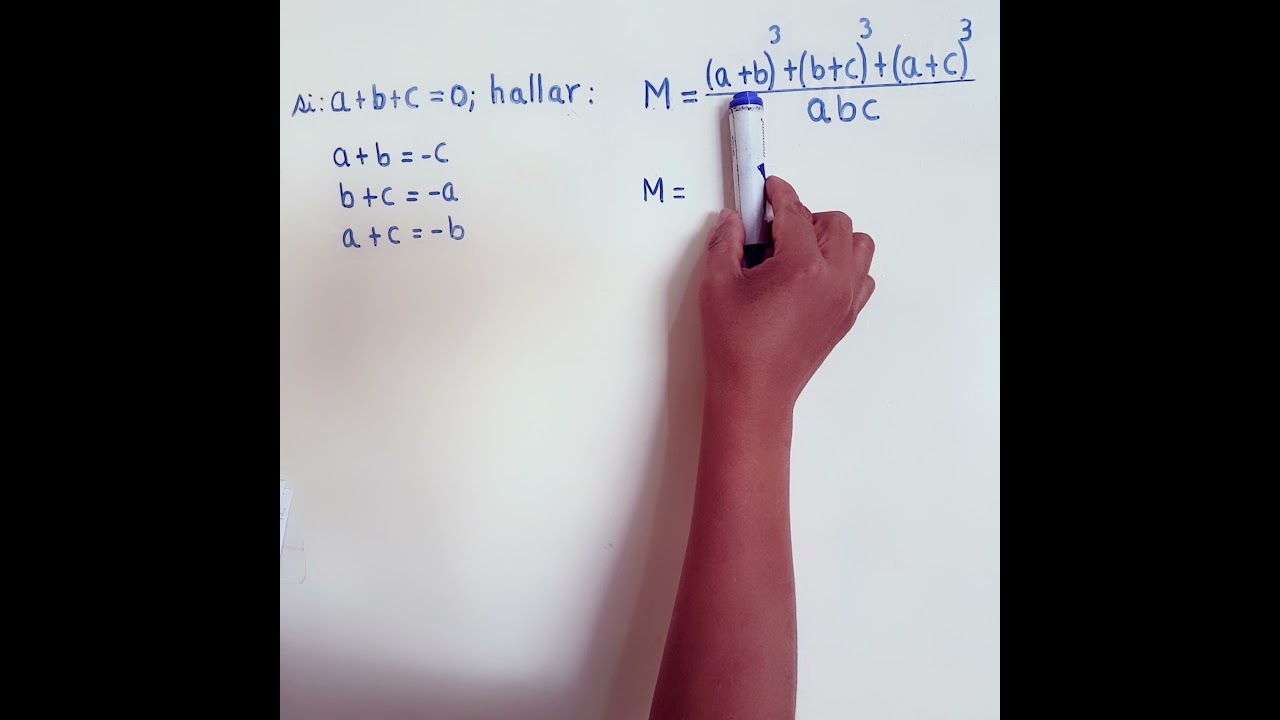 si: a+b+c=0; hallar: M = ((a+b)³+(b+c)³+(a+c)³)/(abc)
a+b = -c
b+c = -a
a+c = -b
M =